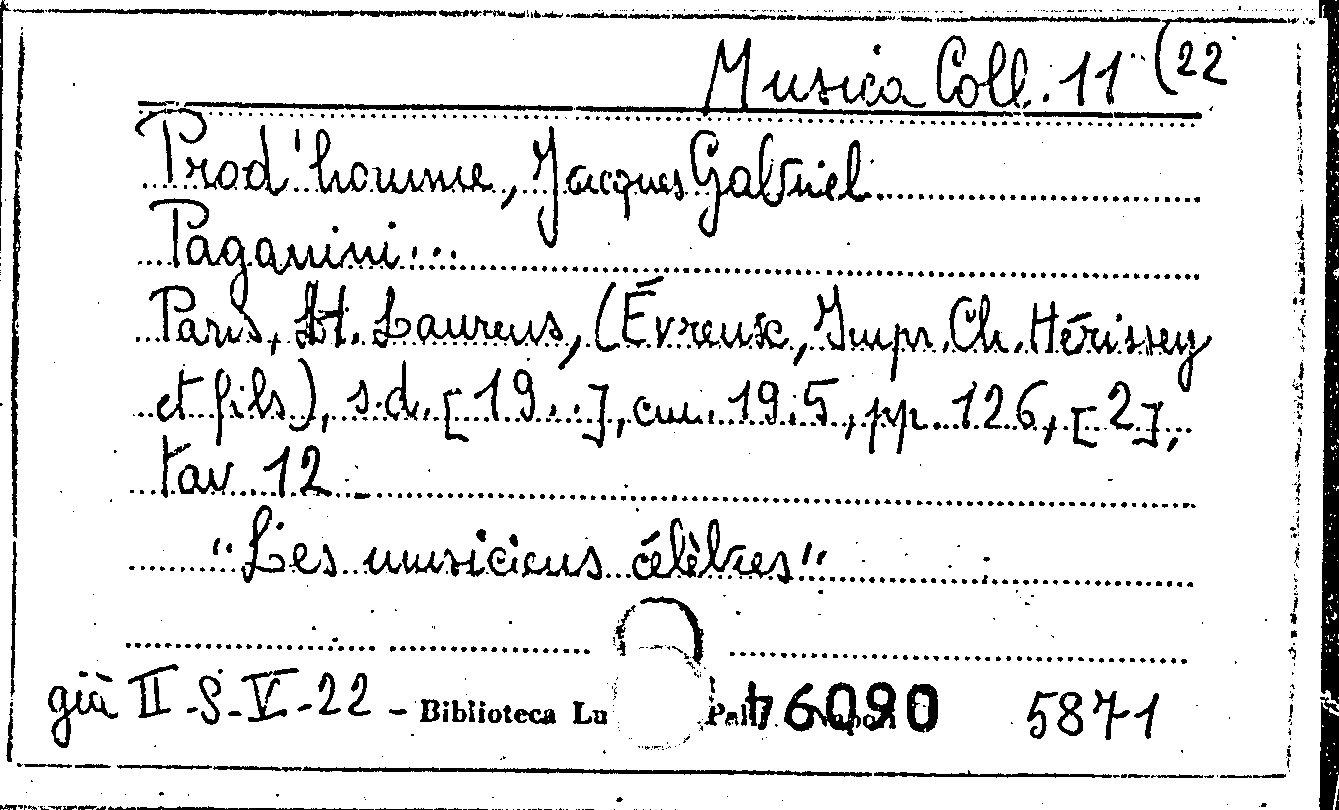 Musica Coll. 11 (22
Prod'homme, Jacques Gabriel
Paganini...
Paris, H. Laurens, (Évreux, Impr. Ch. Hérissey
et fils), s.d. [19..], cm. 19.5, pp. 126, [2],
tav. 12
"Les musiciens célèbres"
già II-S-V-22 - Biblioteca Lu 46090 5871